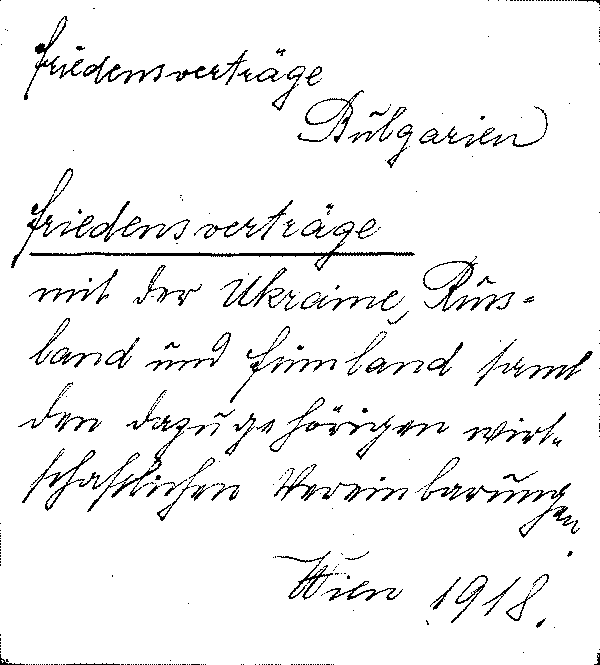 Friedensverträge
Bulgarien
Friedensverträge
mit der Ukraine, Russ-
land und Finnland samt
den dazugehörigen wirt-
schaftlichen Vereinbarungen.
Wien 1918.